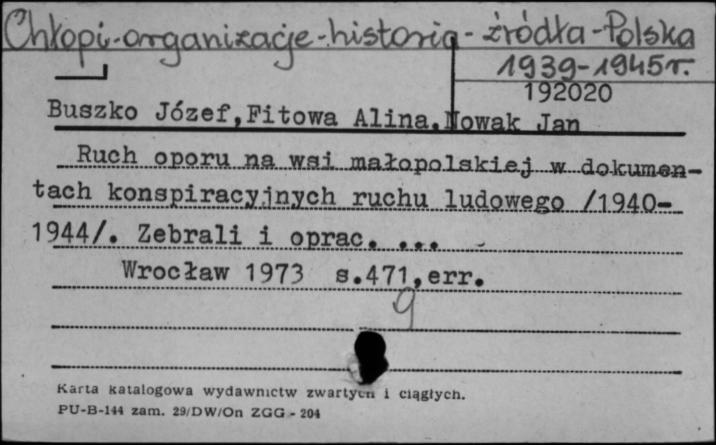 Chłopi-organizacje-historia-źródła-Polska
1939-1945r.
192020
Buszko Józef,Fitowa Alina.Nowak Jan
Ruch oporu na wsi małopolskiej w dokumen-
tach konspiracyjnych ruchu ludowego /1940-
1944/. Zebrali i oprac. ...
Wrocław 1973 s.471,err.
9
Karta katalogowa wydawnictw zwartych i ciągłych.
PU-B-144 zam. 29/DW/On ZGG - 204